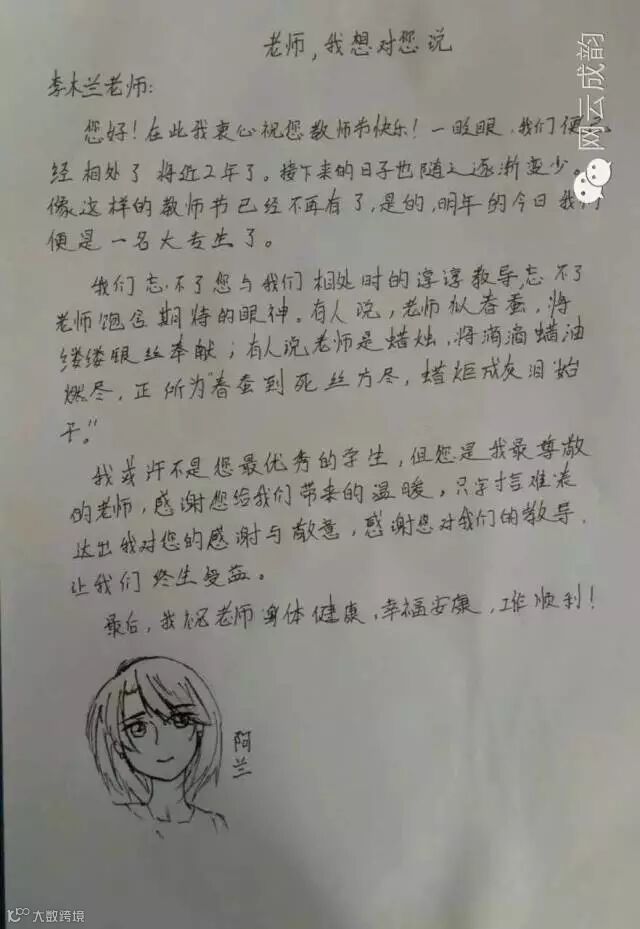 老师，我想对您说
李木兰老师：
您好！在此我衷心祝您教师节快乐！一眨眼，我们便已
经相处了将近2年了。接下来的日子也随之逐渐变少。
像这样的教师节已经不再有了，是的，明年的今日我们
便是一名大专生了。
我们忘不了您与我们相处时的谆谆教导，忘不了
老师饱含期待的眼神。有人说，老师似春蚕，将
缕缕银丝奉献；有人说老师是蜡烛，将滴滴蜡油
燃尽，正所为“春蚕到死丝方尽，蜡炬成灰泪始
干。”
我或许不是您最优秀的学生，但您是我最尊敬
的老师，感谢您给我们带来的温暖，只字寸言难表
达出我对您的感谢与敬意，感谢您对我们的教导，
让我们终生受益。
最后，我祝老师身体健康，幸福安康，工作顺利！
阿兰
网云成韵
大数跨境